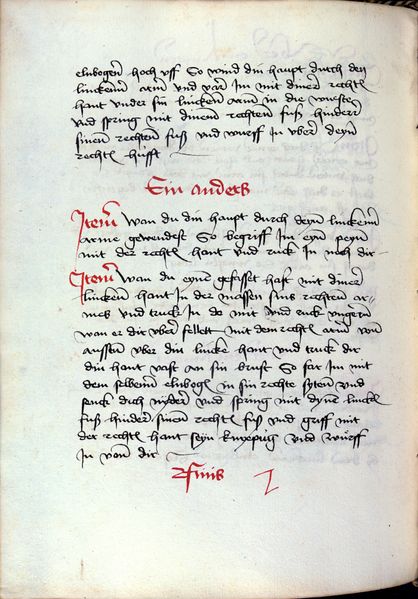 elnbogen hoch uff So wind din haupt durch den
lincken arm und var im mit diner rechten
hant under sin lincken arm in die wuste
und spring mit dinem rechten fuß hinder
sinen rechten fuß und wurff in uber deyn
rechten hufft
Ein anders
Item Wan du din haupt durch deyn lincken
arme gewendest So begriff im eyn peyn
mit der rechten hant und ruck in noch dir
Item wan du eynen gefasset hast mit diner
lincken hant in der massen sins rechten ar-
mes und truck in da mit und ruck
wan er dir uber fellett mit dem rechten arm von
aussen uber din lincke hant und truck dir
din hant vast an sin brust So far im mit
dem selben elnbogen in sin rechte syten und
senck dich nyder und spring mit dyne lincken
fuß hinder sinen rechten fuß und griff mit
der rechten hant seyn kniepug und wurff
In von dir
Finis